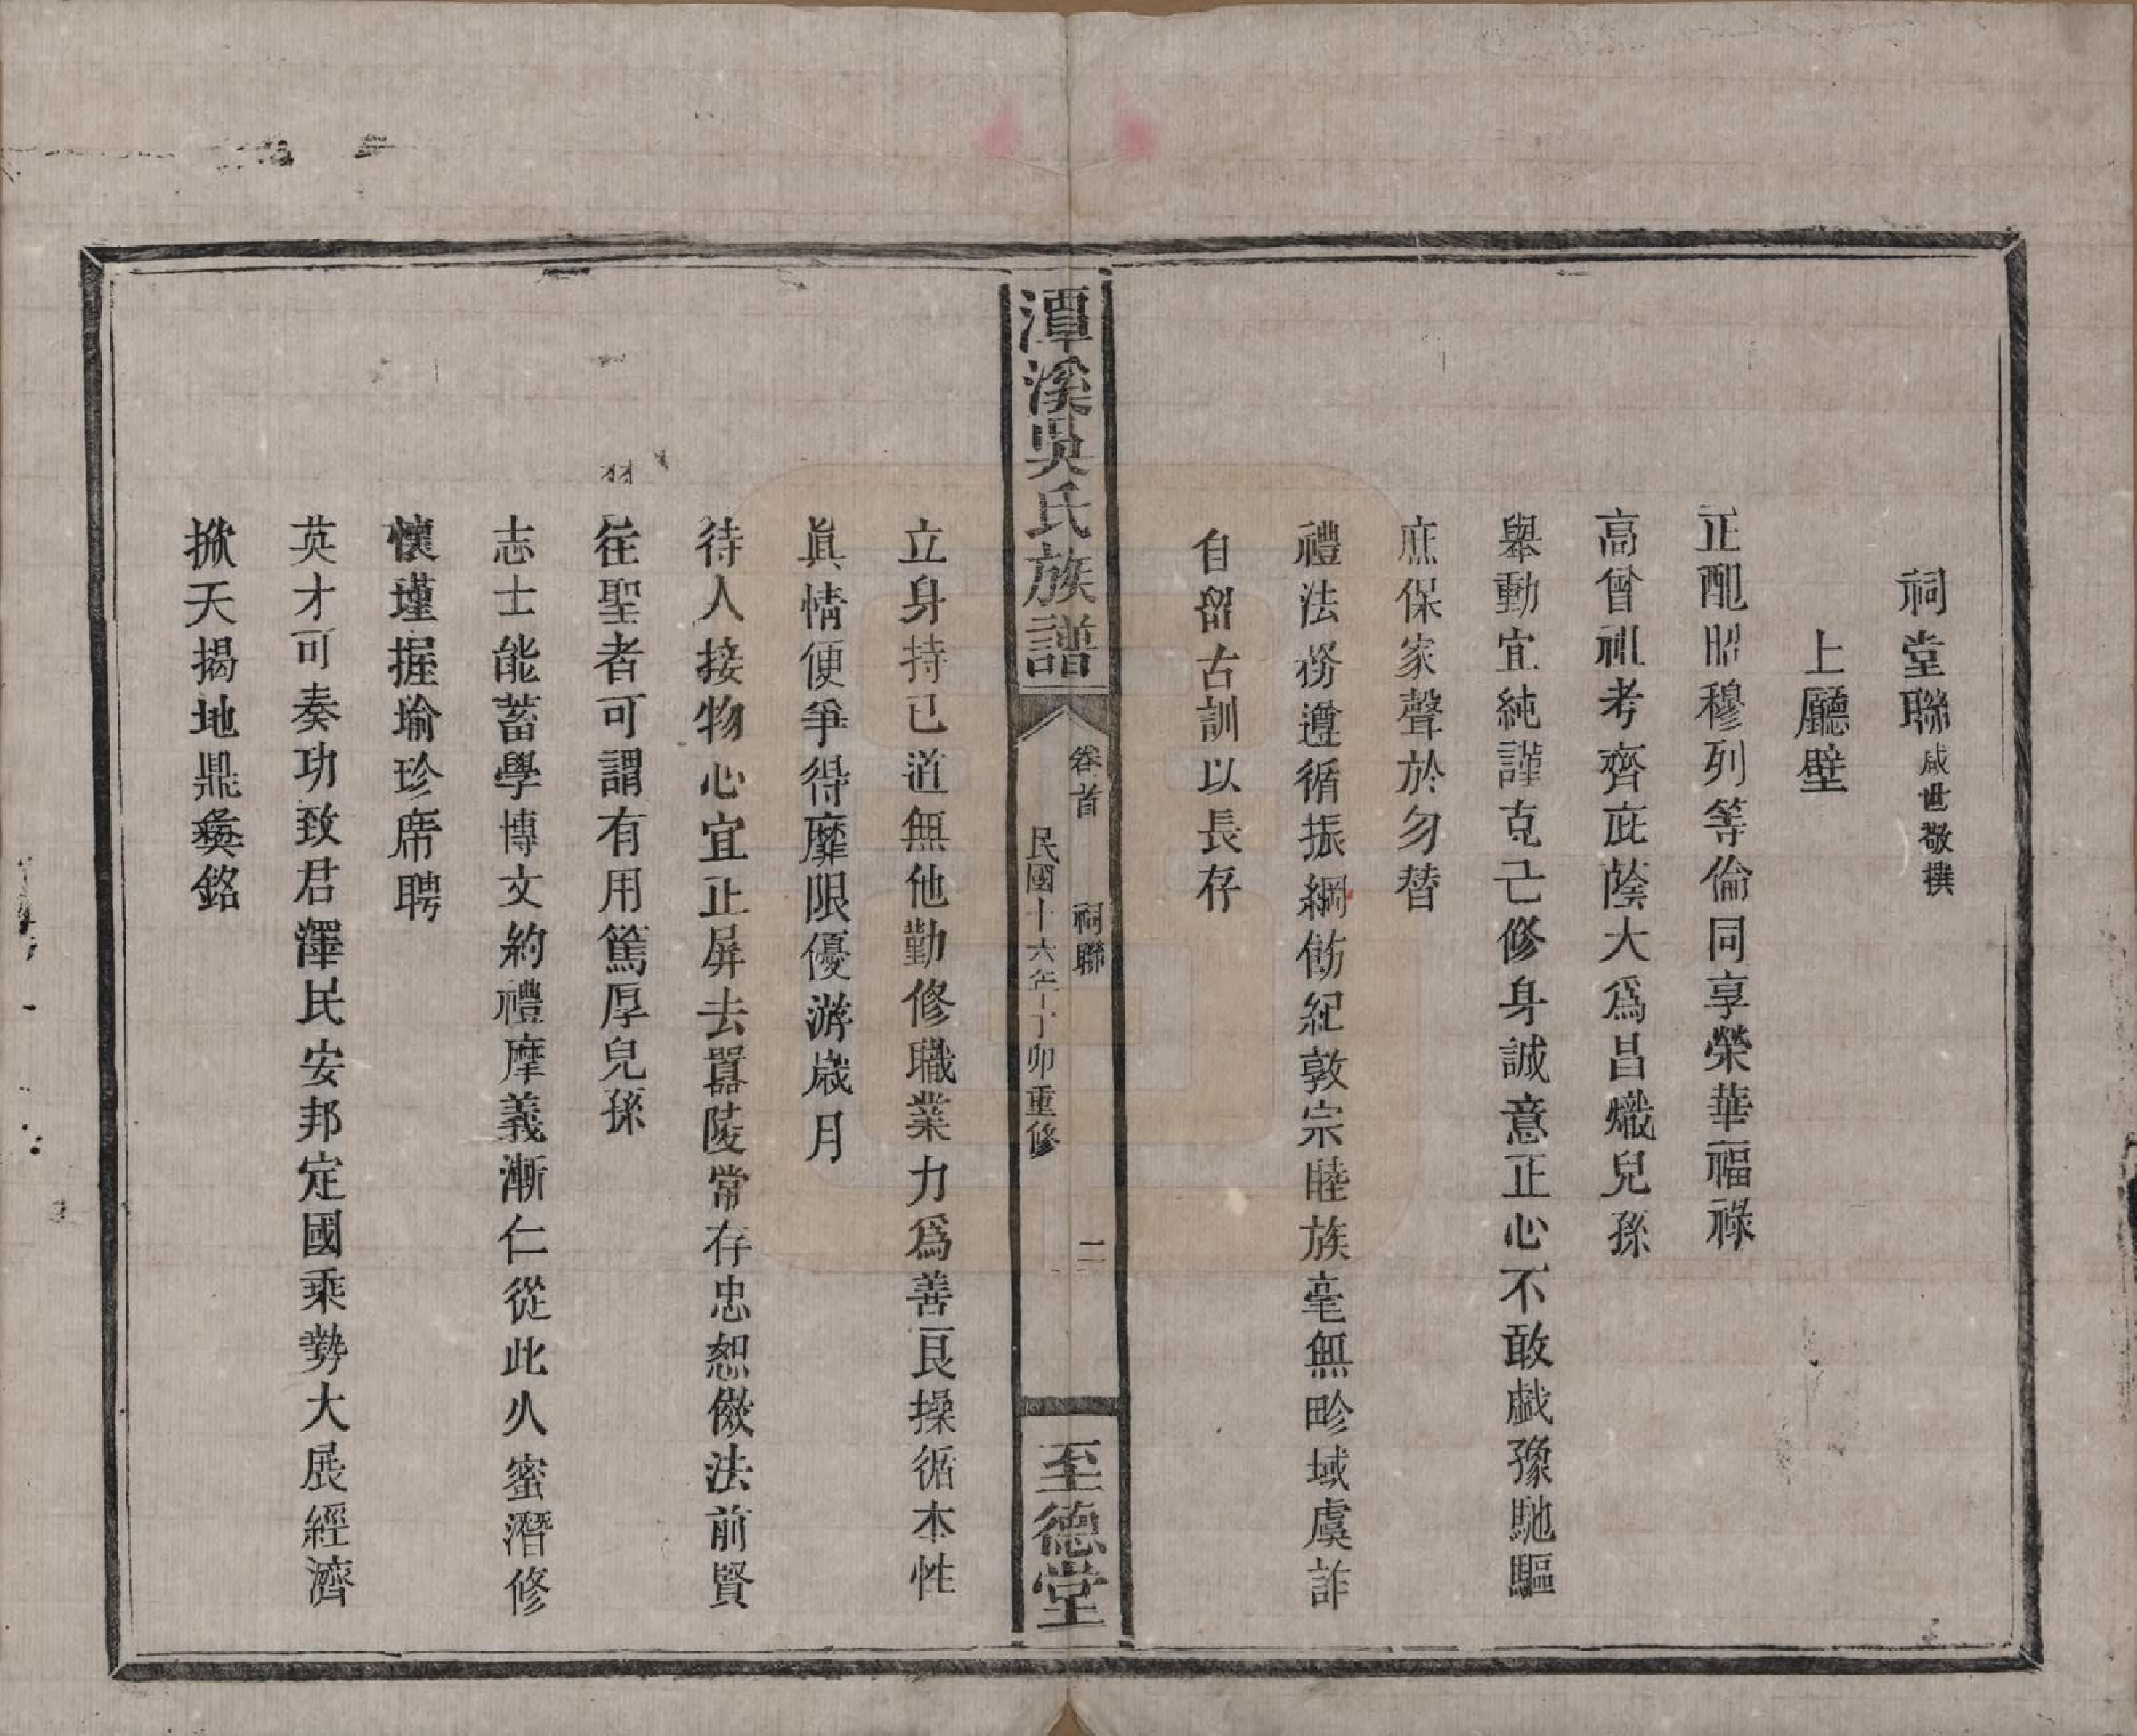 祠堂聯咸世敬撰
上廳壁
正配昭穆列等倫同享榮華福祿
高曾祖考齊庇蔭大爲昌熾兒孫
舉動宜純謹克己修身誠意正心不敢戯豫馳驅
庶保家聲於勿替
禮法務遵循振綱飭紀敦宗睦族毫無畛域虞詐
自留古訓以長存
潭溪吳氏族譜
卷首
祠聯
二
民國十六年丁卯重修
至德堂
立身持已道無他勤修職業力爲善良操循本性
眞情便爭得靡限優游歲月
待人接物心宜正屏去囂陵常存忠恕倣法前賢
往聖者可謂有用篤厚兒孫
志士能蓄學博文約禮摩義漸仁從此久蜜潛修
懷瑾握瑜珍席聘
英才可奏功致君澤民安邦定國乘勢大展經濟
掀天揭地鼎彝銘